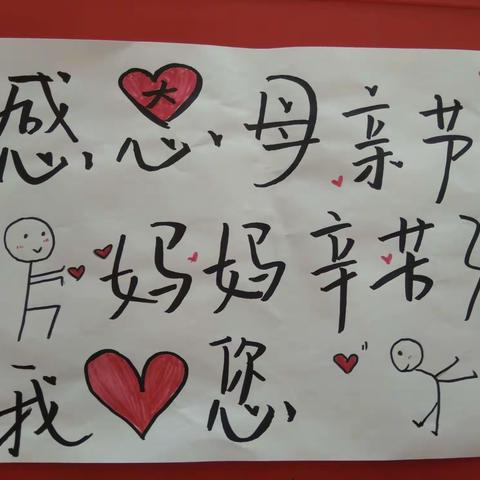 感恩母亲节
妈妈辛苦了
我❤您